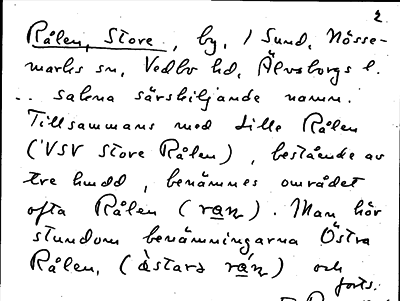 2
Rålen, Store, by, i Sund, Nösse-
marks sn, Vedbo hd, Älvsborgs l.
.. sakna särskiljande namn.
Tillsammans med Lille Rålen
(VSV Store Rålen), bestående av
tre hmdd, benämnes området
ofta Rålen (ran). Man hör
stundom benämningarna Östra
Rålen, (àstara rán) och
forts.